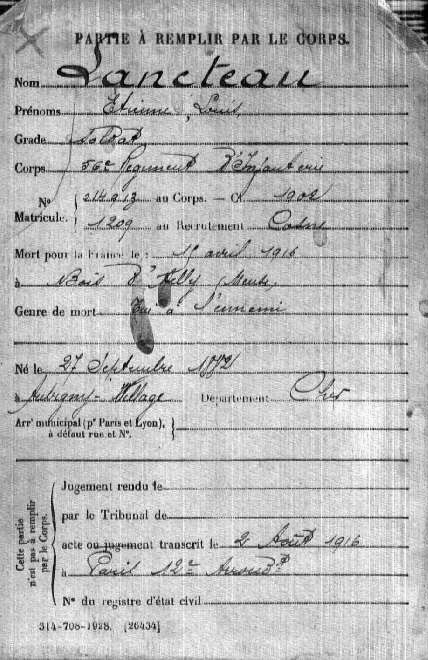 PARTIE À REMPLIR PAR LE CORPS.
Nom Lancteau
Prénoms Etienne, Louis
Grade Soldat
Corps 56e Régiment D'Infanterie
N° Matricule. au Corps. — Cl 1902
1209 au Recrutement
Mort pour la France le : avril 1916
à Bois D'Ailly Meuse
Genre de mort Tué à l'ennemi
Né le 27 Septembre
à Aubigny-Village Département Cher
Arr' municipal (pr Paris et Lyon),
à défaut rue et N°.
Cette partie n'est pas à remplir par le Corps.
Jugement rendu le
par le Tribunal de
acte ou jugement transcrit le 2 Août 1916
à Paris 12e Arrondt
N° du registre d'état civil
314-708-1928. [26434]